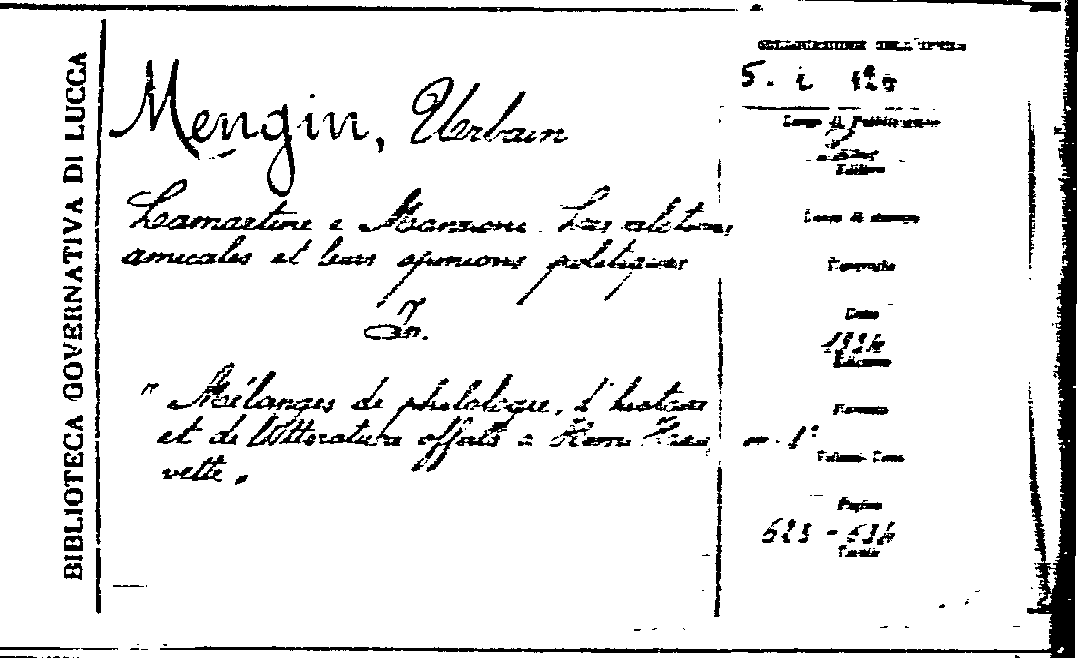 BIBLIOTECA GOVERNATIVA DI LUCCA
Mengin, Urbain
Lamartine e Manzoni. Les relations
amicales et leurs opinions politiques
In.
" Mélanges de philologie, d'histoire
et de littérature offerts a Henri Hau
vette "
COLLOCAZIONE DELL'OPERA
5. i 120
Luogo di Pubblicazione
Editore
Luogo di stampa
Tipografia
Data
1934
Edizione
Formato
in-4°
Volumi-Tomo
Pagine
625 - 634
Tavole